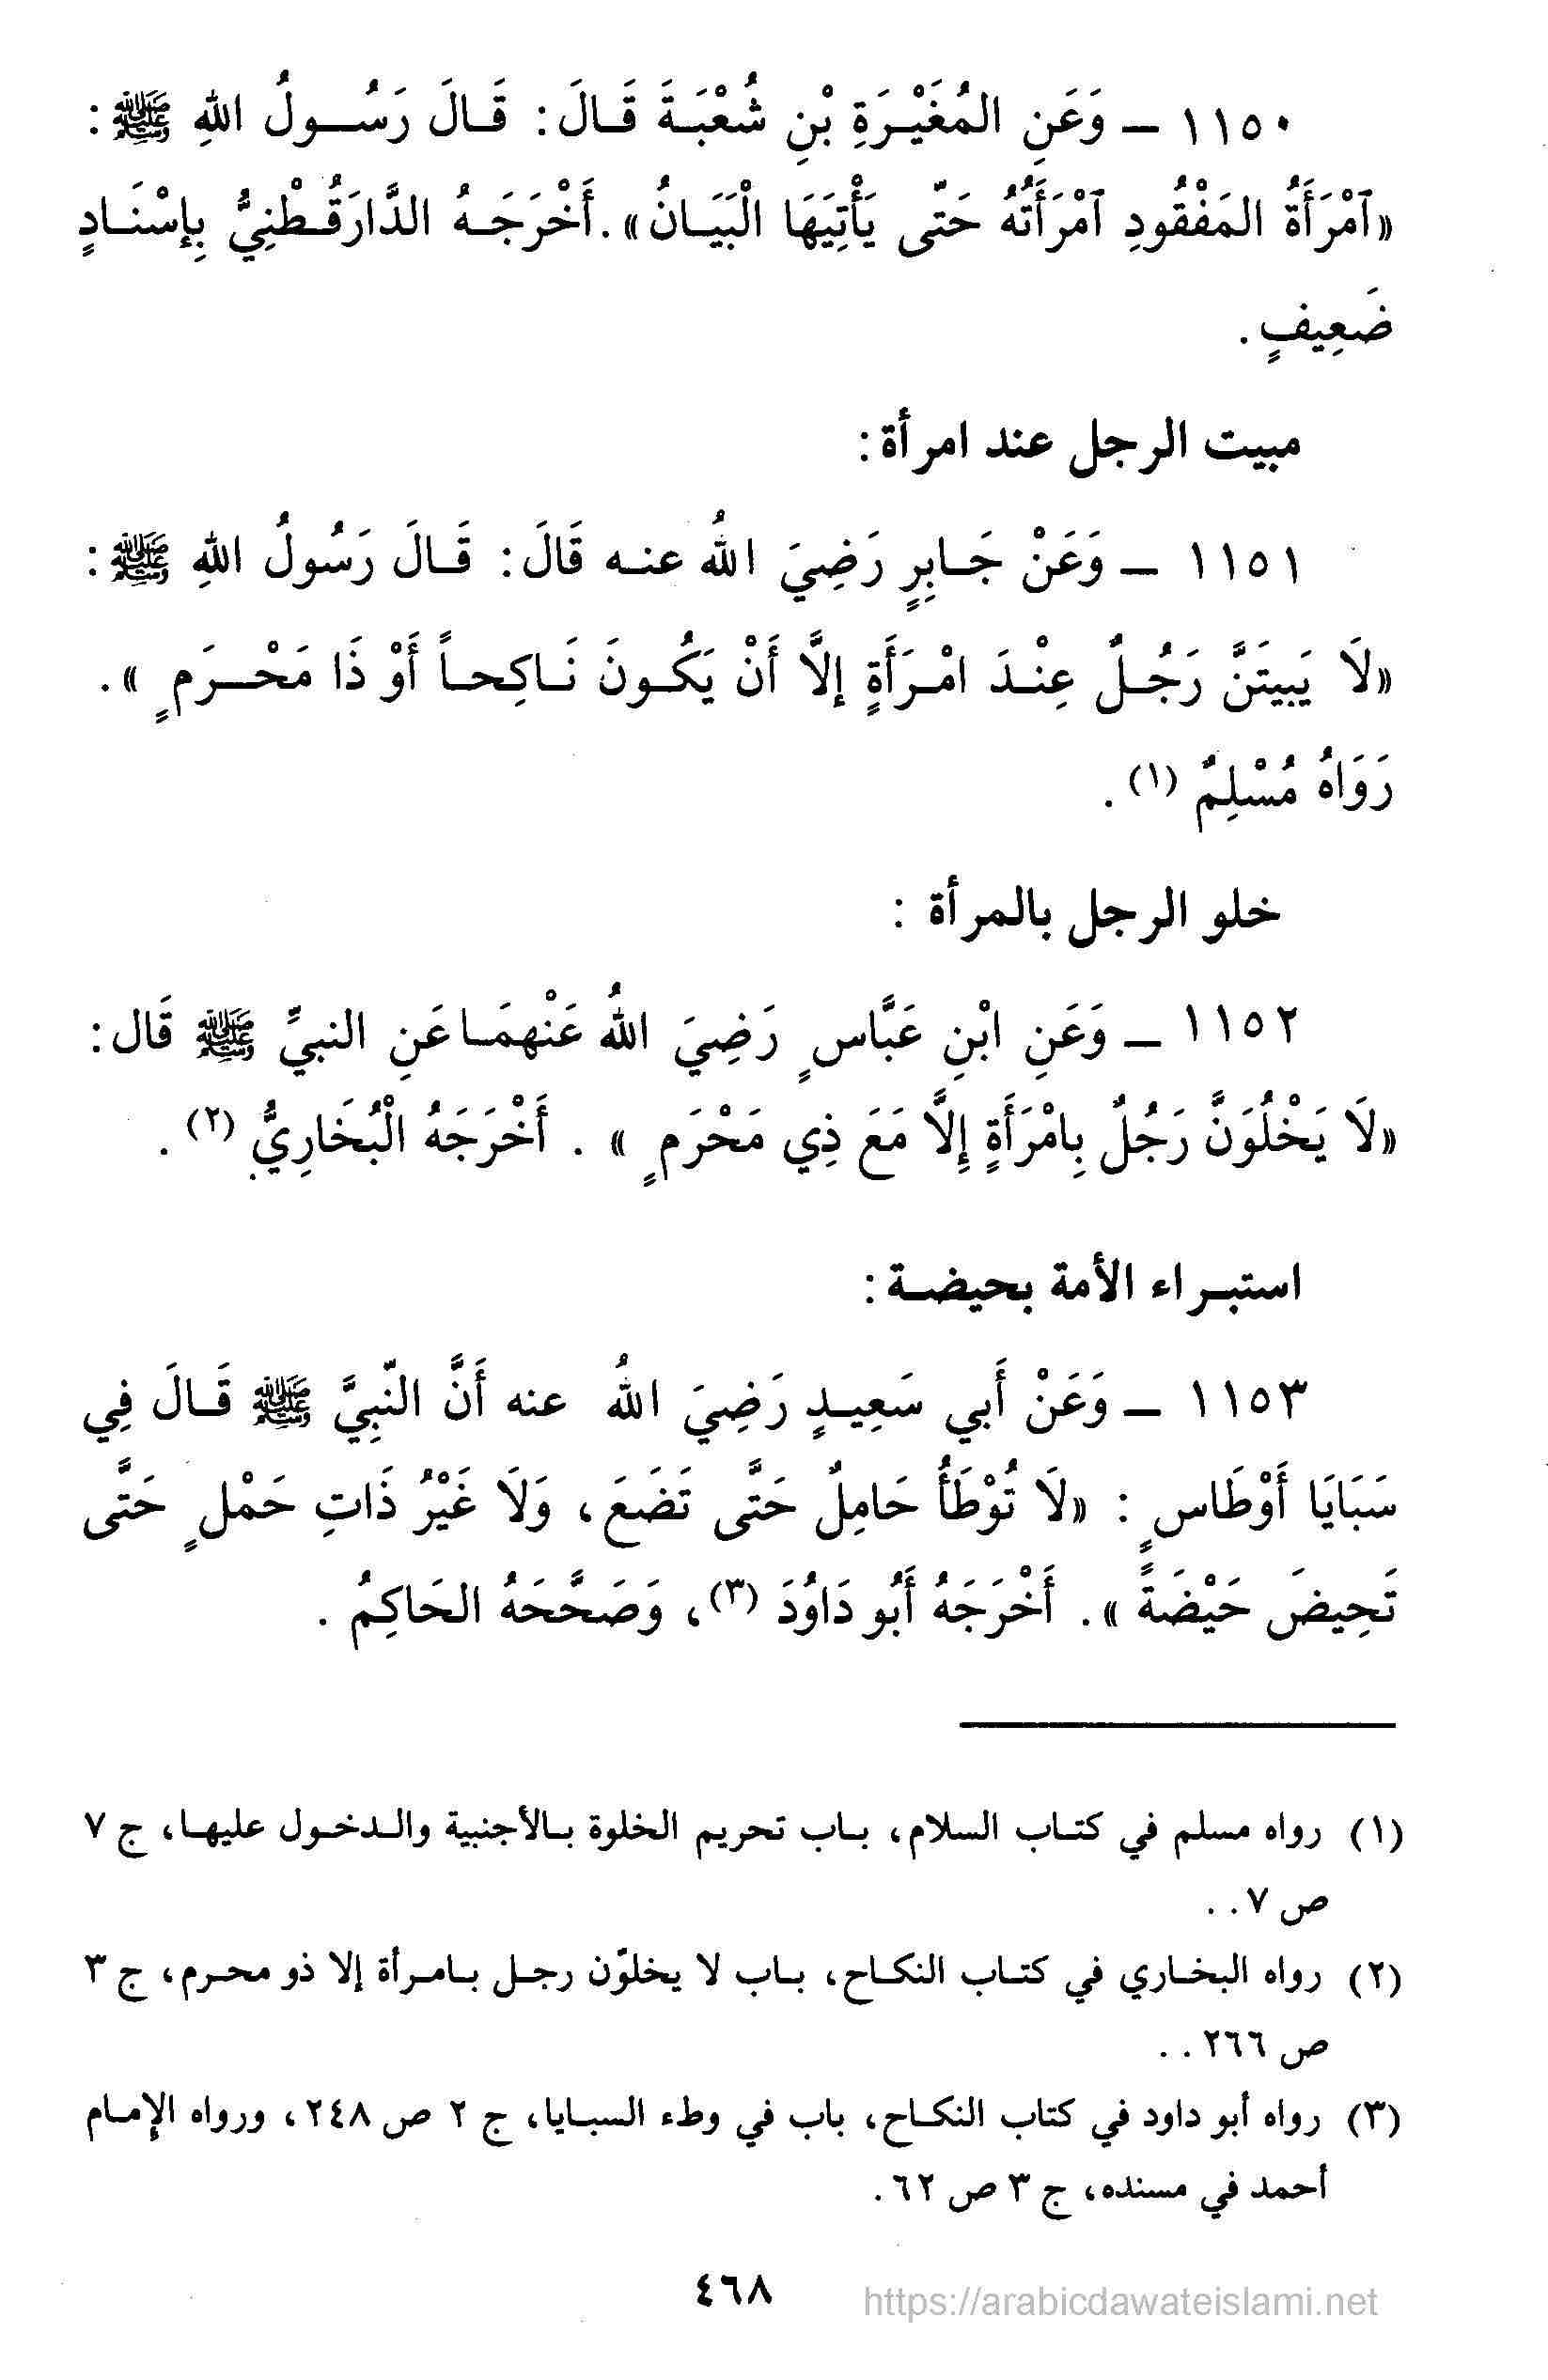 ١١٥٠ ــ وَعَنِ المُغَيْرَةِ بْنِ شُعْبَةَ قَالَ: قَالَ رَسُولُ اللهِ ﷺ:
«ٱمْرَأَةُ المَفْقُودِ ٱمْرَأَتُهُ حَتّى يَأْتِيَهَا الْبَيَانُ». أَخْرَجَهُ الدَّارَقُطْنِيُّ بِإِسْنَادٍ
ضَعِيفٍ.
مبيت الرجل عند امرأة:
١١٥١ ــ وَعَنْ جَابِرٍ رَضِيَ اللهُ عنه قَالَ: قَالَ رَسُولُ اللهِ ﷺ:
«لَا يَبيتَنَّ رَجُلٌ عِنْدَ امْرَأَةٍ إلاَّ أَنْ يَكُونَ نَاكِحاً أَوْ ذَا مَحْرَمٍ».
رَوَاهُ مُسْلِمٌ (١).
خلو الرجل بالمرأة :
١١٥٢ ــ وَعَنِ ابْنِ عَبَّاسٍ رَضِيَ اللهُ عَنْهمَا عَنِ النبيِّ ﷺ قَال:
«لَا يَخْلُوَنَّ رَجُلٌ بِامْرَأَةٍ إِلاَّ مَعَ ذِي مَحْرَمٍ» . أَخْرَجَهُ الْبُخَارِيُّ (٢) .
استبراء الأمة بحيضة:
١١٥٣ ــ وَعَنْ أَبي سَعِيدٍ رَضِيَ اللهُ عنه أَنَّ النّبِيَّ ﷺ قَالَ فِي
سَبَايَا أَوْطَاسٍ : «لَا تُوْطَأُ حَامِلٌ حَتَّى تَضَعَ، وَلَا غَيْرُ ذَاتِ حَمْلٍ حَتَّى
تَحِيضَ حَيْضَةً». أَخْرَجَهُ أَبُو دَاوُدَ (٣)، وَصَحَّحَهُ الحَاكِمُ .
(١) رواه مسلم في كتاب السلام، باب تحريم الخلوة بالأجنبية والدخول عليها، ج ٧
ص ٧ . .
(٢) رواه البخاري في كتاب النكاح، باب لا يخلوّن رجل بامرأة إلا ذو محرم، ج ٣
ص ٢٦٦ . .
(٣) رواه أبو داود في كتاب النكاح، باب في وطء السبايا، ج ٢ ص ٢٤٨، ورواه الإمام
أحمد في مسنده، ج ٣ ص ٦٢.
٤٦٨
https://arabicdawateislami.net